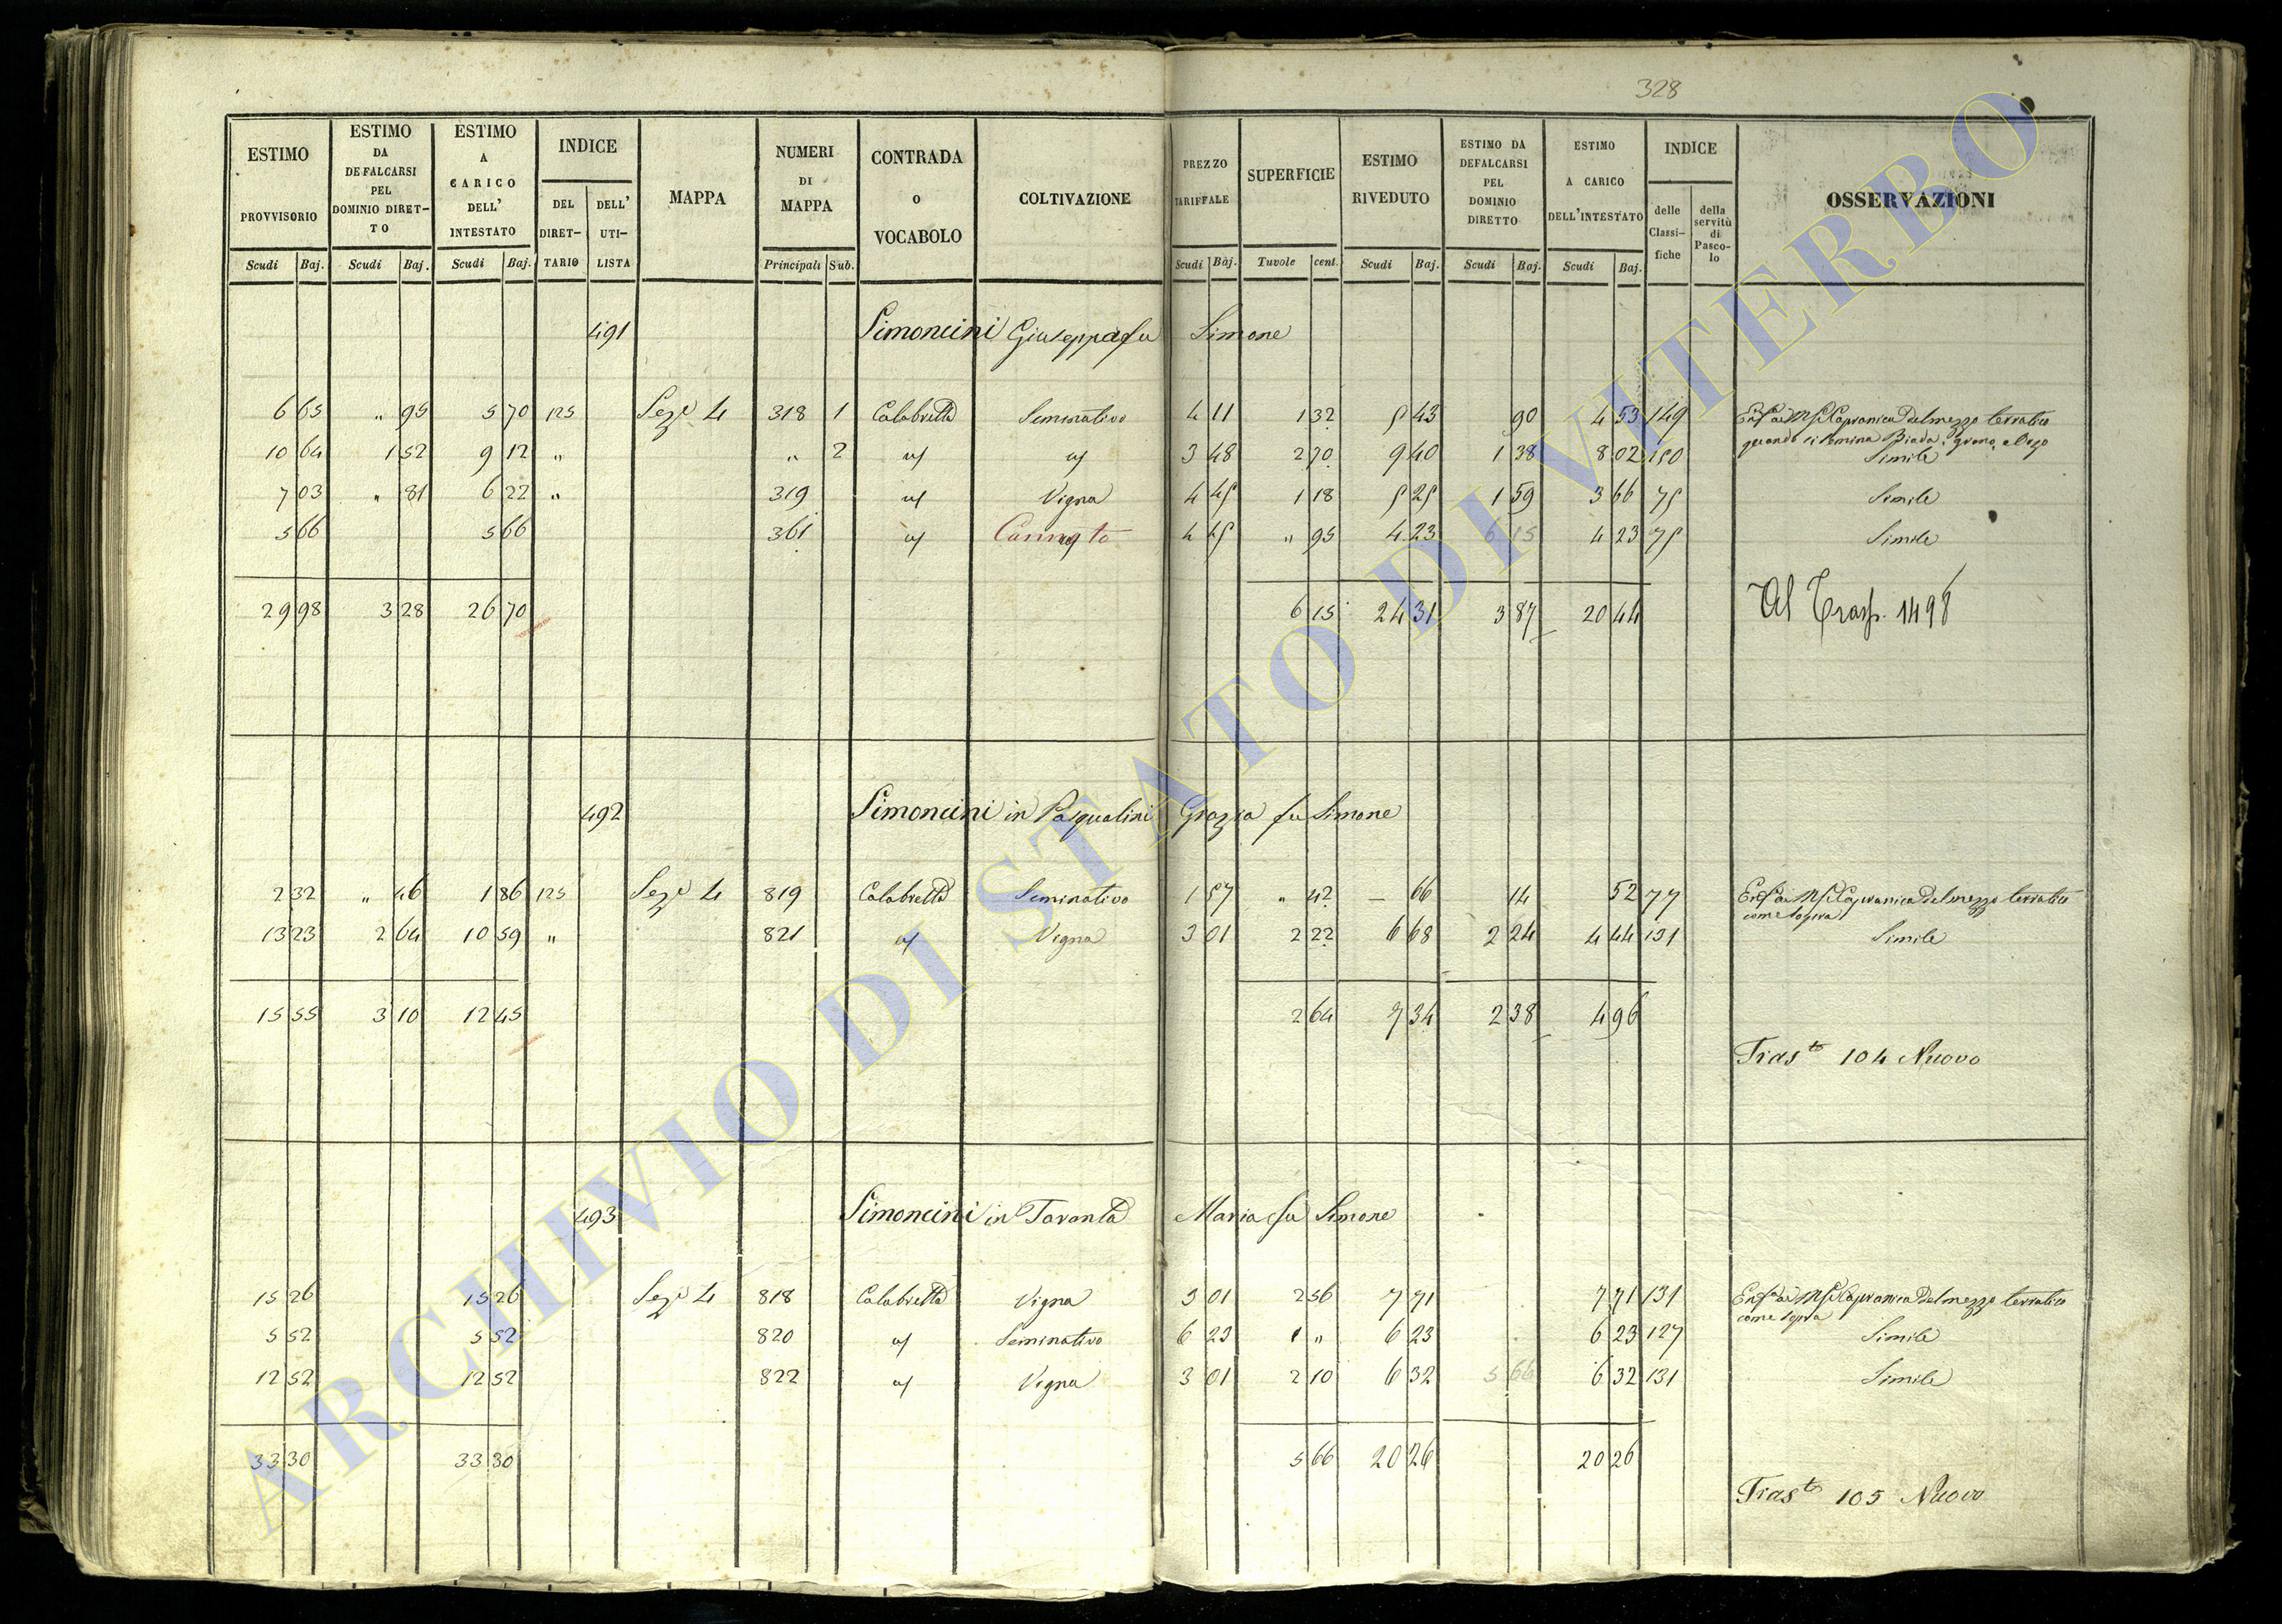 328
ESTIMO PROVVISORIO | ESTIMO DA DEFALCARSI PEL DOMINIO DIRETTO | ESTIMO A CARICO DELL' INTESTATO | INDICE DEL DIRETTARIO | DELL' UTILISTA | MAPPA | NUMERI DI MAPPA | CONTRADA O VOCABOLO | COLTIVAZIONE | PREZZO TARIFFALE | SUPERFICIE | ESTIMO RIVEDUTO | ESTIMO DA DEFALCARSI PEL DOMINIO DIRETTO | ESTIMO A CARICO DELL'INTESTATO | INDICE delle Classifiche | della servitù di Pascolo | OSSERVAZIONI
Scudi Baj. | Scudi Baj. | Scudi Baj. | Principali Sub. | Scudi Baj. | Tavole cent. | Scudi Baj. | Scudi Baj. | Scudi Baj.
491 Simoncini Giuseppa fu Simone
6 65 | " 95 | 5 70 | 125 | Sez. 4 | 318 | 1 | Calabretta | Seminativo | 4 11 | 1 32 | 5 43 | 90 | 4 53 | 149 | Capranica del mezzo terratico
quando si semina Biada, grano, e Orzo
10 64 | 1 52 | 9 12 | " | " | 2 | 3 48 | 2 70 | 9 40 | 1 38 | 8 02 | 150 | Simile
7 03 | " 81 | 6 22 | " | 319 | Vigna | 4 45 | 1 18 | 5 25 | 1 59 | 3 66 | 75 | Simile
5 66 | 5 66 | 361 | Canneto | 4 45 | " 95 | 4 23 | 6 15 | 4 23 | 75 | Simile
29 98 | 3 28 | 26 70 | 6 15 | 24 31 | 3 87 | 20 44 | Al Trasp. 1498
492 Simoncini in Pasqualini Grazia fu Simone
2 32 | " 46 | 1 86 | 125 | Sez. 4 | 819 | Calabretta | Seminativo | 1 57 | " 42 | — 66 | 14 | 52 | 77 | Capranica del mezzo terratico
come sopra
13 23 | 2 64 | 10 59 | " | 821 | Vigna | 3 01 | 2 22 | 6 68 | 2 24 | 4 44 | 131 | Simile
15 55 | 3 10 | 12 45 | 2 64 | 7 34 | 2 38 | 4 96
Tras.to 104 Nuovo
493 Simoncini in Taranta Maria fu Simone
15 26 | 15 26 | Sez. 4 | 818 | Calabretta | Vigna | 3 01 | 2 56 | 7 71 | 7 71 | 131 | Capranica del mezzo terratico
come sopra
5 52 | 5 52 | 820 | Seminativo | 6 23 | 1 " | 6 23 | 6 23 | 127 | Simile
12 52 | 12 52 | 822 | Vigna | 3 01 | 2 10 | 6 32 | 5 66 | 6 32 | 131 | Simile
33 30 | 33 30 | 5 66 | 20 26 | 20 26
Tras.to 105 Nuovo
ARCHIVIO DI STATO DI VITERBO